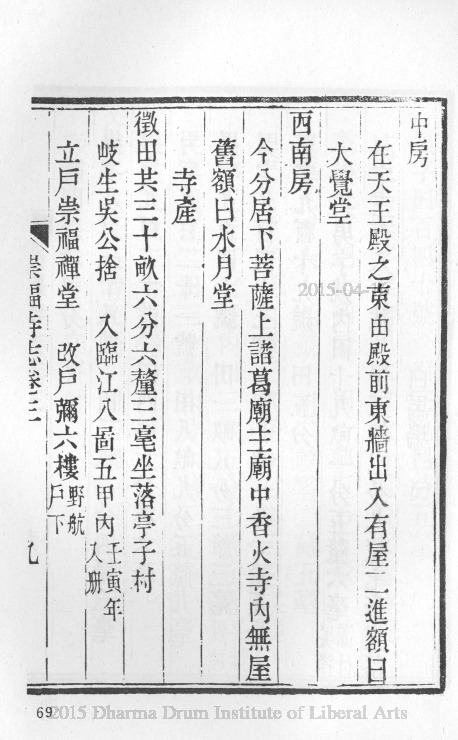 中房
在天王殿之東由殿前東牆出入有屋二進額曰
大覺堂
西南房
今分居下菩薩上諸葛廟主廟中香火寺內無屋
舊額曰水月堂
寺產
徵田共三十畝六分六釐三毫坐落亭子村
岐生吳公捨 入臨江八啚五甲內壬寅年入册
立戶崇福禪堂 改戶彌六樓野航戶下
崇福寺志卷三
九
2015-04-
69
2015 Dharma Drum Institute of Liberal Arts